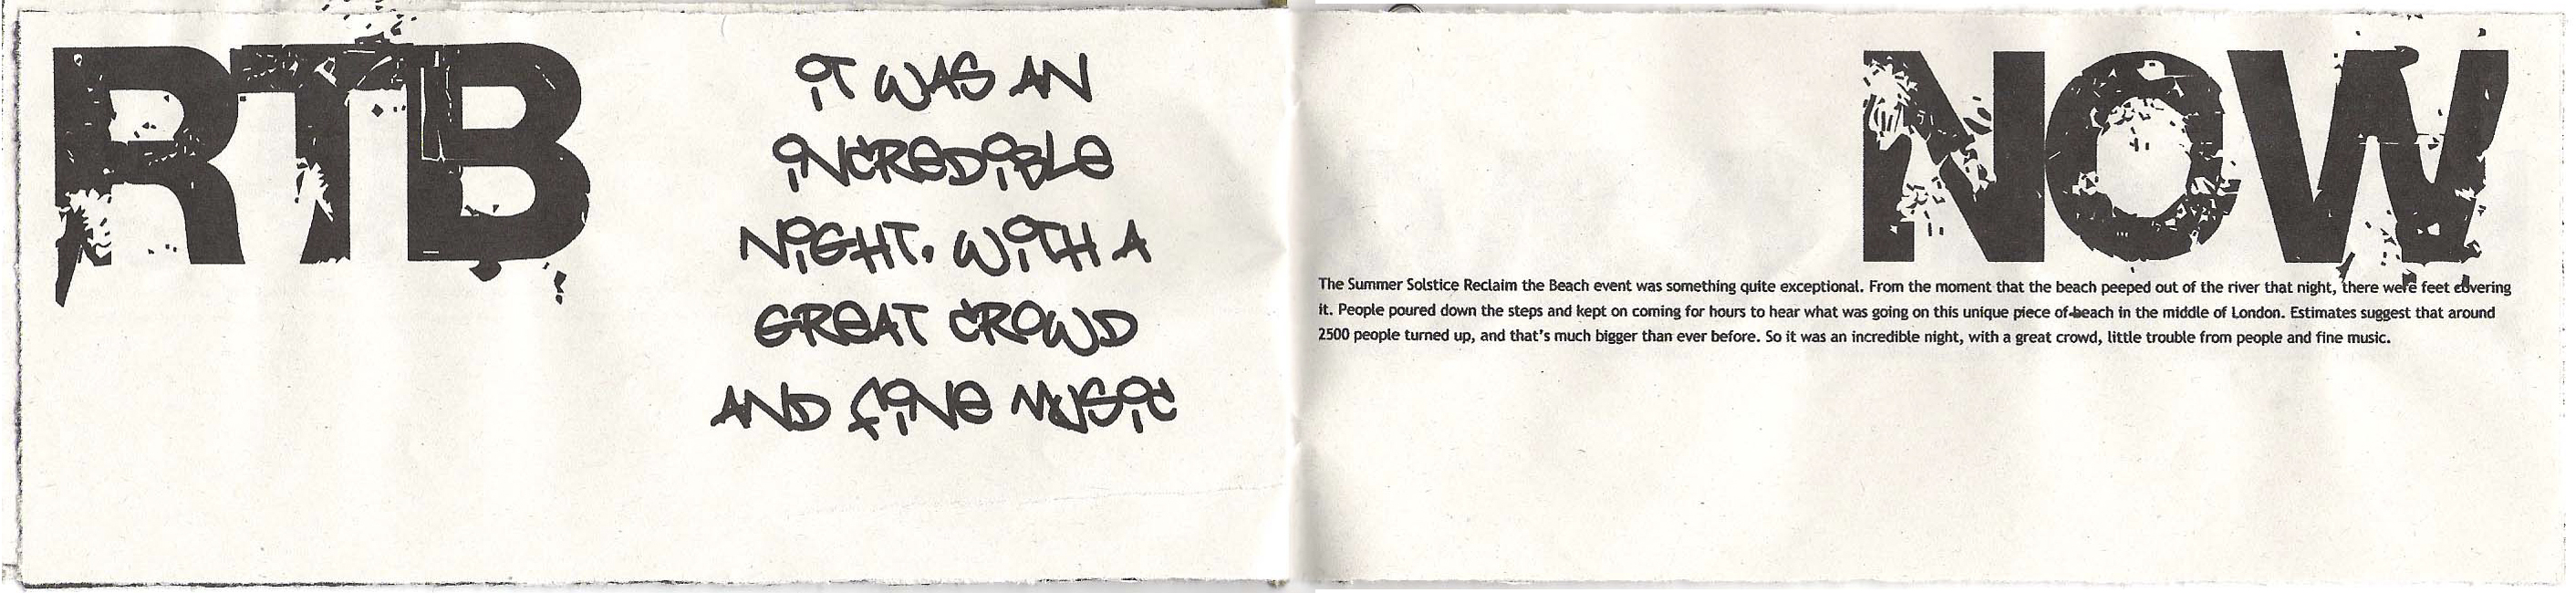 RTB
iT WAS AN
iNCReDiBLe
NiGHT. WiTH A
GReAT CROWD
AND fiNe MUSiC
NOW
The Summer Solstice Reclaim the Beach event was something quite exceptional. From the moment that the beach peeped out of the river that night, there were feet covering
it. People poured down the steps and kept on coming for hours to hear what was going on this unique piece of beach in the middle of London. Estimates suggest that around
2500 people turned up, and that's much bigger than ever before. So it was an incredible night, with a great crowd, little trouble from people and fine music.